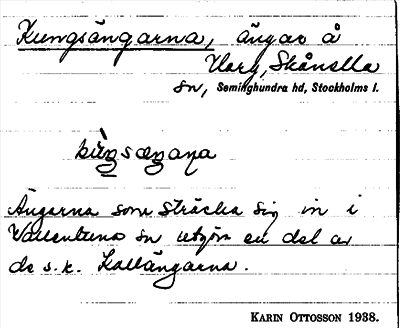 Kungsängarna, ängar å
Skånella
sn, Seminghundra hd, Stockholms l.
Ängarna som sträcka sig in i
Vallentuna sn utgör en del av
de s.k. Kallängarna.
KARIN OTTOSSON 1938.